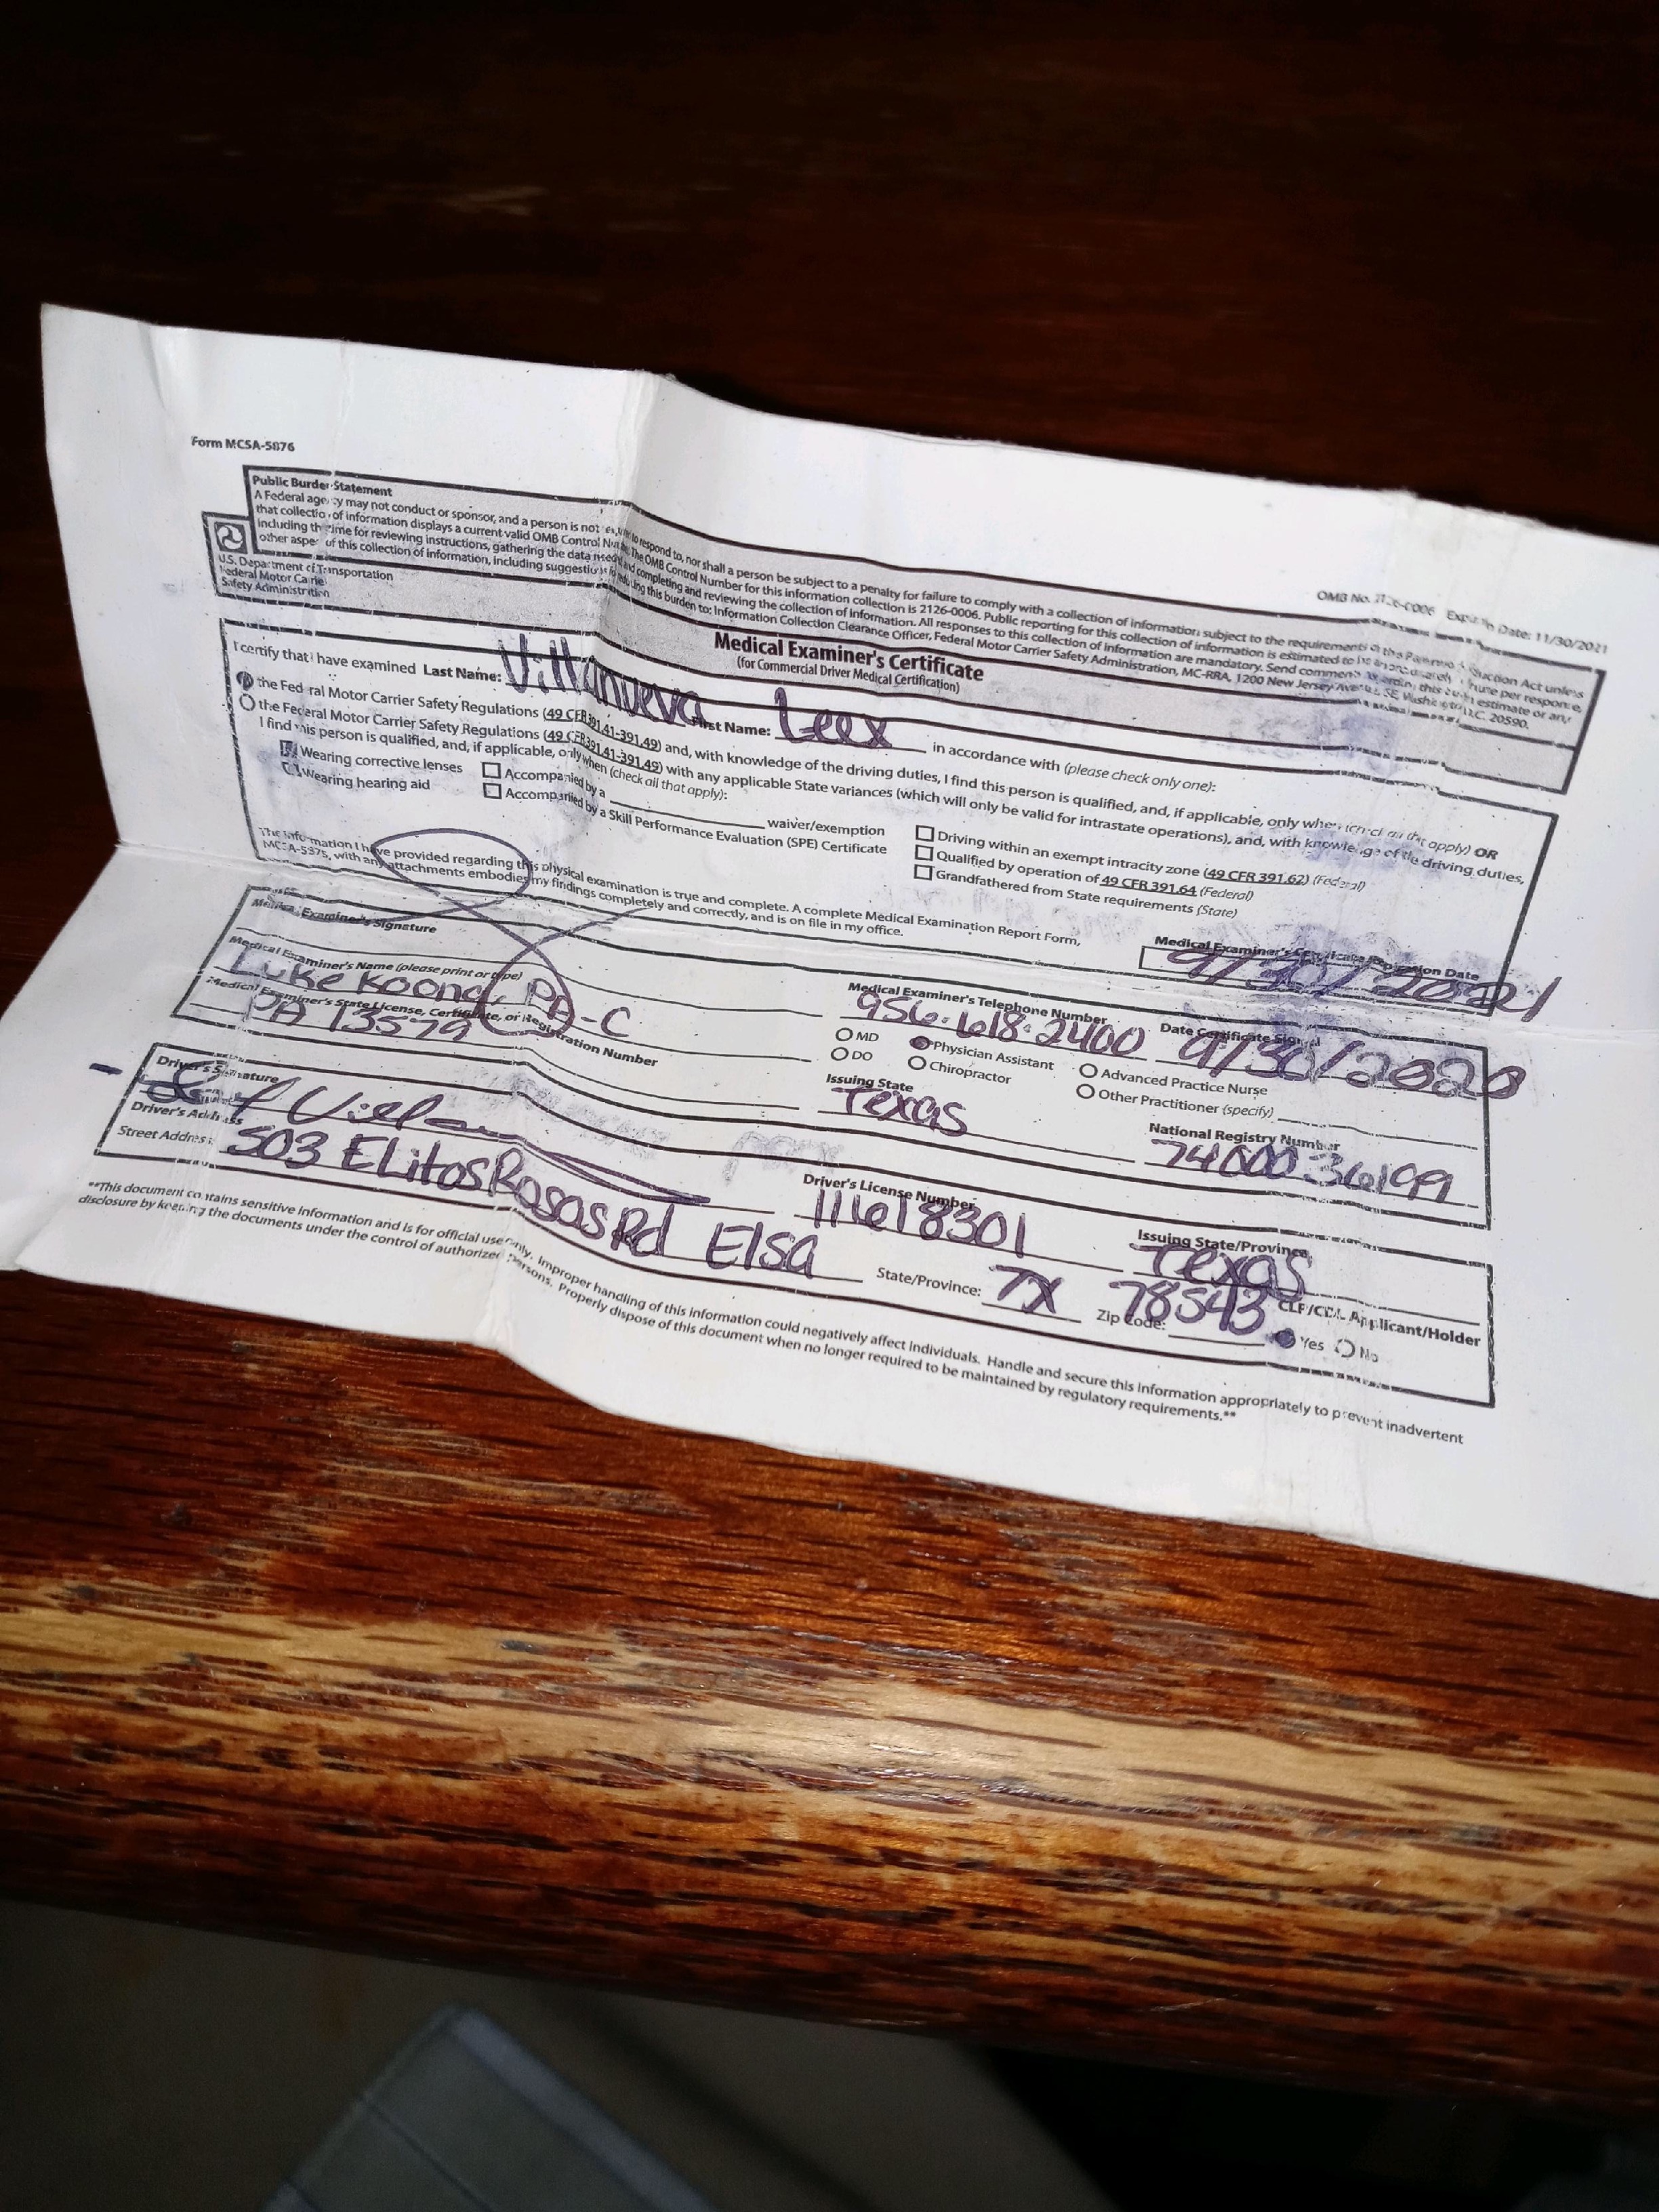 Form MCSA-5876
OMB No. 2126-0006 Expiration Date: 11/30/2021
Public Burden Statement
A Federal agency may not conduct or sponsor, and a person is not required to respond to, nor shall a person be subject to a penalty for failure to comply with a collection of information subject to the requirements of the Paperwork Reduction Act unless
that collection of information displays a current valid OMB Control Number. The OMB Control Number for this information collection is 2126-0006. Public reporting for this collection of information is estimated to be approximately minute per response,
including the time for reviewing instructions, gathering the data needed, and completing and reviewing the collection of information. All responses to this collection of information are mandatory. Send comments regarding this burden estimate or any
other aspect of this collection of information, including suggestions for reducing this burden to: Information Collection Clearance Officer, Federal Motor Carrier Safety Administration, MC-RRA, 1200 New Jersey Avenue, SE, Washington, D.C. 20590.
U.S. Department of Transportation
Federal Motor Carrier
Safety Administration
Medical Examiner's Certificate
(for Commercial Driver Medical Certification)
I certify that I have examined Last Name: Villanueva First Name: Leex in accordance with (please check only one):
the Federal Motor Carrier Safety Regulations (49 CFR 391.41-391.49) and, with knowledge of the driving duties, I find this person is qualified, and, if applicable, only when (check all that apply) OR
the Federal Motor Carrier Safety Regulations (49 CFR 391.41-391.49) with any applicable State variances (which will only be valid for intrastate operations), and, with knowledge of the driving duties,
I find this person is qualified, and, if applicable, only when (check all that apply):
Wearing corrective lenses Accompanied by a waiver/exemption Driving within an exempt intracity zone (49 CFR 391.62) (Federal)
Wearing hearing aid Accompanied by a Skill Performance Evaluation (SPE) Certificate Qualified by operation of 49 CFR 391.64 (Federal)
Grandfathered from State requirements (State)
The information I have provided regarding this physical examination is true and complete. A complete Medical Examination Report Form,
MCSA-5875, with any attachments embodies my findings completely and correctly, and is on file in my office.
Medical Examiner's Certificate Expiration Date
9/30/2021
Medical Examiner's Signature Medical Examiner's Telephone Number Date Certificate Signed
956.618.2400 9/30/2020
Medical Examiner's Name (please print or type)
Luke Koong, PA-C
MD Physician Assistant Advanced Practice Nurse
DO Chiropractor Other Practitioner (specify)
Medical Examiner's State License, Certificate, or Registration Number Issuing State National Registry Number
PA 13579 Texas 7400036199
Driver's Signature Driver's License Number Issuing State/Province
11618301 Texas
Driver's Address
Street Address: 503 E Litos Rosas Rd Elsa State/Province: TX Zip Code: 78543
CLP/CDL Applicant/Holder
Yes No
**This document contains sensitive information and is for official use only. Improper handling of this information could negatively affect individuals. Handle and secure this information appropriately to prevent inadvertent
disclosure by keeping the documents under the control of authorized persons. Properly dispose of this document when no longer required to be maintained by regulatory requirements.**